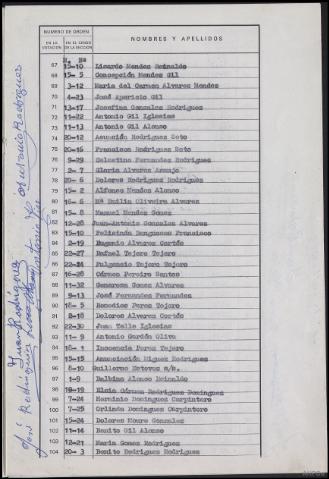 NUMERO DE ORDEN
NOMBRES Y APELLIDOS
EN LA VOTACION
EN EL CENSO DE LA SECCION
H. Nº
67 15-10 Lisardo Mendes Reinaldo
68 15- 5 Concepción Mendes Gil
69 3-12 Maria del Carmen Alvares Mendes
70 4-23 José Aparicio Gil
71 13-17 Josefina Gonzales Rodrigues
72 11-22 Antonio Gil Iglesias
73 11-13 Antonio Gil Alonso
74 20-12 Asunción Rodrigues Soto
75 20-16 Francisco Rodrigues Soto
76 9-29 Celestino Fernandes Rodrigues
77 2- 7 Gloria Alvares Araujo
78 20- 6 Dolores Rodrigues Rodrigues
79 15- 2 Alfonso Mendes Alonso
80 16- 6 Mª Emilia Oliveira Alvares
81 15- 8 Manuel Mendes Gomes
82 12-28 Juan-Antonio Gonzales Alvares
83 15-19 Felicinda
84 2-19 Eugenio Alvares Cortés
85 22-27 Rafael Tejero Tejero
86 22-24 Fulgencio Tejero Tejero
87 16-28 Cármen Pereira Santos
88 11-32 Generosa Gomes Alvares
89 9-13 José Fernandes Fernandes
90 18- 6 Remedios Peres Tejero
91 2-18 Dolores Alvares Cortés
92 22-30 Juan Valle Iglesias
93 11- 9 Antonio Gordón Oliva
94 18- 1 Inocencia Peres Tejero
95 15-15 Annunciación Migues Rodrigues
96 8-10 Guillermo Esteves s/n.
97 1- 9 Balbino Alonso Reinaldo
98 19-19 Elvia Cármen Rodrigues Domingues
99 7-24 Herminio Domingues Carpintero
100 7-25 Orlinda Domingues Carpintero
101 15-24 Dolores Moure Gonzales
102 11-14 Benito Gil Alonso
103 12-21 Maria Gomes Rodrigues
104 20- 3 Benito Rodrigues Rodrigues
José Rodríguez
Juan Rodríguez
Antonio Rodríguez